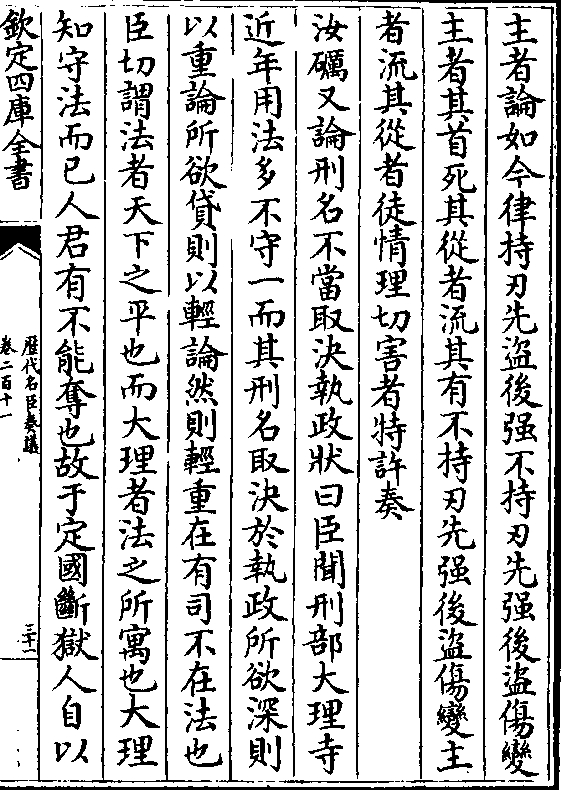 主者論如今律持刃先盜後强不持刃先强後盜傷變
主者其首死其從者流其有不持刃先强後盜傷變主
者流其從者徒情理切害者特許奏
汝礪又論刑名不當取決執政狀曰臣聞刑部大理寺
近年用法多不守一而其刑名取決於執政所欲深則
以重論所欲貸則以輕論然則輕重在有司不在法也
臣切謂法者天下之平也而大理者法之所寓也大理
知守法而已人君有不能奪也故于定國斷獄人自以
欽定四庫全書
歴代名臣奏議
卷二百十一
三十一